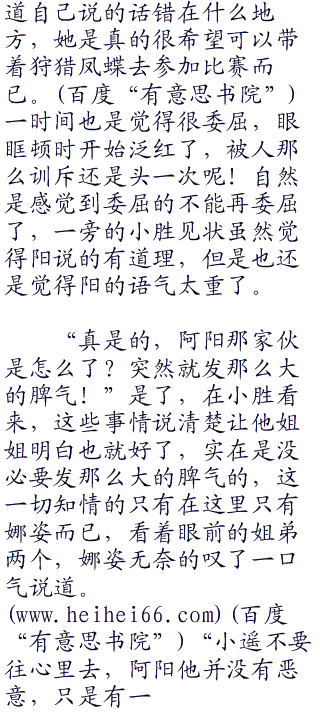 道自己说的话错在什么地
方，她是真的很希望可以带
着狩猎凤蝶去参加比赛而
已。(百度“有意思书院”)
一时间也是觉得很委屈，眼
眶顿时开始泛红了，被人那
么训斥还是头一次呢！自然
是感觉到委屈的不能再委屈
了，一旁的小胜见状虽然觉
得阳说的有道理，但是也还
是觉得阳的语气太重了。
“真是的，阿阳那家伙
是怎么了？突然就发那么大
的脾气！”是了，在小胜看
来，这些事情说清楚让他姐
姐明白也就好了，实在是没
必要发那么大的脾气的，这
一切知情的只有在这里只有
娜姿而已，看着眼前的姐弟
两个，娜姿无奈的叹了一口
气说道。
(www.heihei66.com)(百度
“有意思书院”)“小遥不要
往心里去，阿阳他并没有恶
意，只是有一